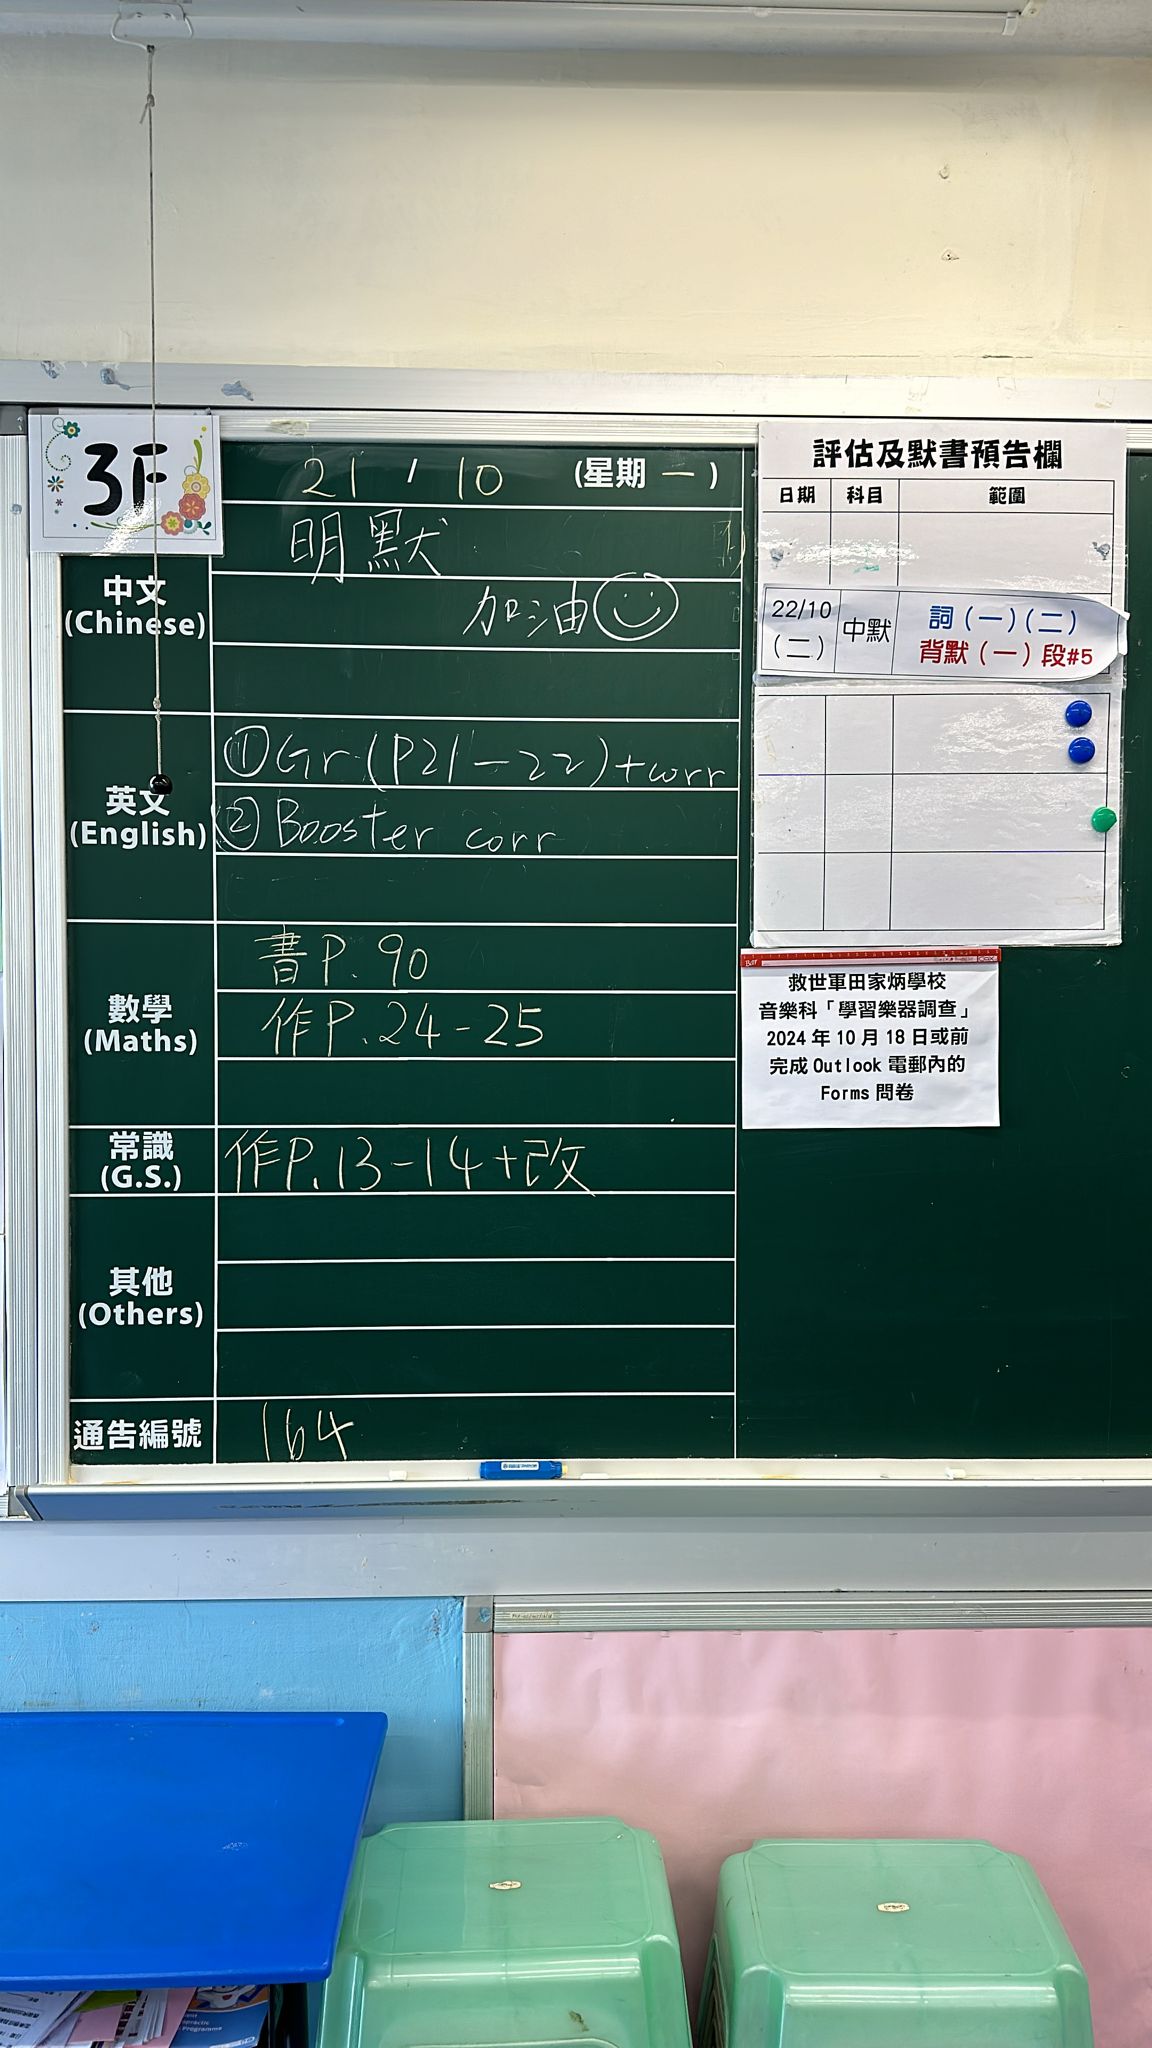 3F
21 / 10 (星期 一 )
中文
(Chinese)
明默
加油
英文
(English)
①Gr.(P21-22)+corr
② Booster corr
數學
(Maths)
書P.90
作P.24-25
常識
(G.S.)
作P.13-14+改
其他
(Others)
通告編號
164
評估及默書預告欄
日期 科目 範圍
22/10
(二)
中默
詞(一)(二)
背默(一)段#5
救世軍田家炳學校
音樂科「學習樂器調查」
2024 年 10 月 18 日或前
完成 Outlook 電郵內的
Forms 問卷